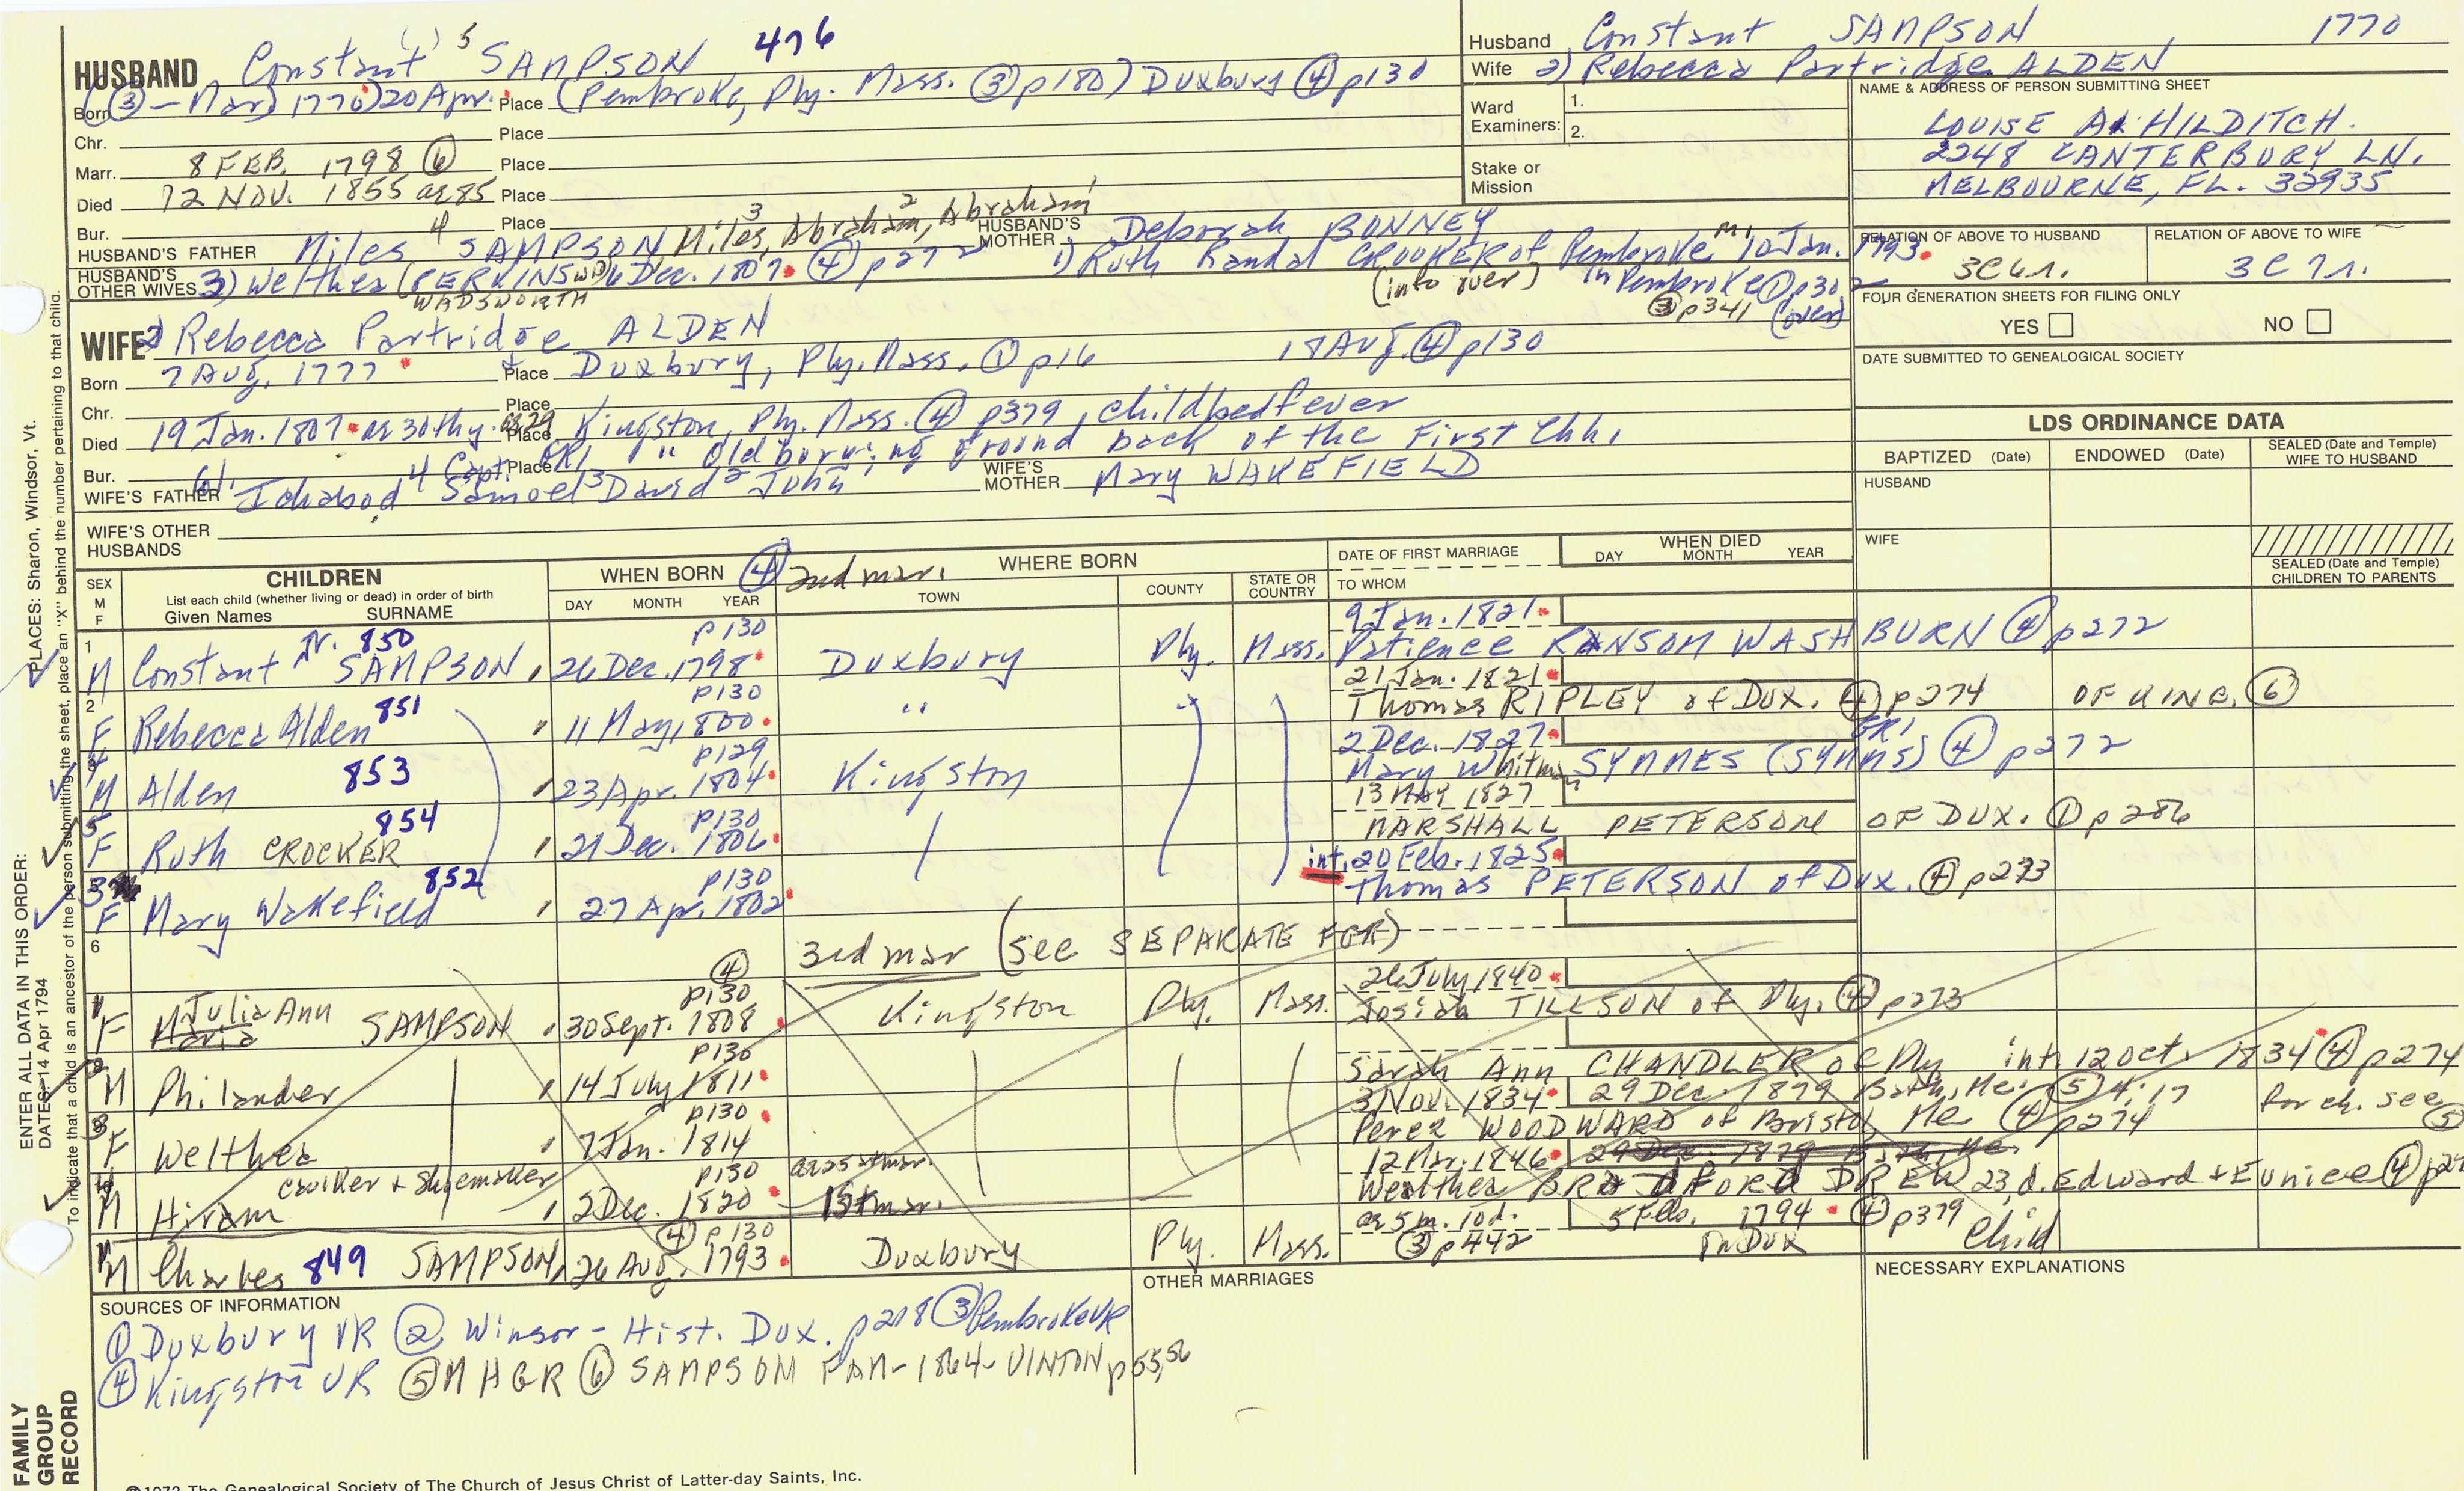 HUSBAND Constant 5 SAMPSON 476
Born (③ - Mar) 1770) 20 Apr. Place (Pembroke, Ply. Mass. ③ p180) Duxbury ④ p130
Chr. Place
Marr. 8 FEB. 1798 ⑥ Place
Died 12 NOV. 1855 ae 85 Place
Bur. Place
HUSBAND'S FATHER Miles 4 SAMPSON Miles 3, Abraham 2, Abraham 1 HUSBAND'S MOTHER Deborah BONNEY
HUSBAND'S OTHER WIVES 3) Welthea (PERKINS) WADSWORTH 6 Dec. 1807 ④ p272 1) Ruth Randal CROOKER of Pembroke 10 Jan. 1793.
(info over) in Pembroke ① p302
③ p341 (over)
Husband Constant SAMPSON 1770
Wife 2) Rebecca Partridge ALDEN
Ward Examiners: 1.
2.
Stake or Mission
NAME & ADDRESS OF PERSON SUBMITTING SHEET
LOUISE A. HILDITCH.
2248 CANTERBURY LN.
MELBOURNE, FL. 32935
RELATION OF ABOVE TO HUSBAND
RELATION OF ABOVE TO WIFE
FOUR GENERATION SHEETS FOR FILING ONLY
YES NO
DATE SUBMITTED TO GENEALOGICAL SOCIETY
WIFE 2) Rebecca Partridge ALDEN
Born 7 Aug. 1777 Place Duxbury, Ply. Mass. ① p16 17 Aug. ④ p130
Chr. Place
Died 19 Jan. 1807 ae 30thy. ae 29 Place Kingston, Ply. Mass. ④ p379, childbed fever
Bur. GR1 Place " Old burying ground back of the First Chh.
WIFE'S FATHER Ichabod 4 Capt. Samuel 3 David 2 John 1 WIFE'S MOTHER Mary WAKEFIELD
WIFE'S OTHER HUSBANDS
LDS ORDINANCE DATA
BAPTIZED (Date) ENDOWED (Date) SEALED (Date and Temple) WIFE TO HUSBAND
HUSBAND
WIFE
SEALED (Date and Temple) CHILDREN TO PARENTS
SEX M F
CHILDREN
List each child (whether living or dead) in order of birth
Given Names SURNAME
WHEN BORN ④ 2nd mar.
DAY MONTH YEAR
WHERE BORN
TOWN COUNTY STATE OR COUNTRY
DATE OF FIRST MARRIAGE
TO WHOM
WHEN DIED
DAY MONTH YEAR
1 M Constant Jr. 850 SAMPSON p130 26 Dec. 1798 Duxbury Ply. Mass. 9 Jan. 1821
Patience RANSOM WASHBURN ④ p272
2 F Rebecca Alden 851 p130 11 May 1800 " 21 Jan. 1821
Thomas RIPLEY of Dux. ④ p274 OF KING. ⑥
4 M Alden 853 p129 23 Apr. 1804 Kingston 2 Dec. 1827
Mary Whitman SYMMES (SYMMS) GR1 ④ p272
5 F Ruth CROCKER 854 p130 21 Dec. 1806 13 MAY 1827
MARSHALL PETERSON OF DUX. ① p286
3 F Mary Wakefield 852 p130 27 Apr. 1802 int. 20 Feb. 1825
Thomas PETERSON of Dux. ④ p273
6 3rd mar (see SEPARATE FGR)
④
F Julia Ann Maria SAMPSON p130 30 Sept. 1808 Kingston Ply. Mass. 26 July 1840
Josiah TILLSON of Ply. ④ p273
M Philander p130 14 July 1811 Sarah Ann CHANDLER of Ply int. 12 Oct. 1834 ④ p274
F Welthea p130 7 Jan. 1814 3 Nov. 1834 29 Dec. 1879 Bath, Me. ⑤ 4:17 for ch. see ⑤
Perez WOODWARD of Bristol, Me ④ p274
M Hiram caulker + shoemaker p130 2 Dec. 1820 ae 25 at mar. 12 Mar. 1846 29 Dec. 1879 Bath, Me.
Wealthea BRADFORD DREW 23, d. Edward + Eunice ④
1st mar.
M Charles 849 SAMPSON ④ p130 26 Aug. 1793 Duxbury Ply. Mass. ae 5 m. 10d. 5 Feb. 1794 ④ p379
③ p442 in Dux Child
SOURCES OF INFORMATION
① Duxbury VR ② Winsor - Hist. Dux. p218 ③ Pembroke VR
④ Kingston VR ⑤ MHGR ⑥ SAMPSON FAM - 1864 - VINTON p55,56
OTHER MARRIAGES
NECESSARY EXPLANATIONS
FAMILY GROUP RECORD
ENTER ALL DATA IN THIS ORDER:
DATES: 14 Apr 1794
PLACES: Sharon, Windsor, Vt.
To indicate that a child is an ancestor of the person submitting the sheet, place an "X" behind the number pertaining to that child.
1972 The Genealogical Society of The Church of Jesus Christ of Latter-day Saints, Inc.